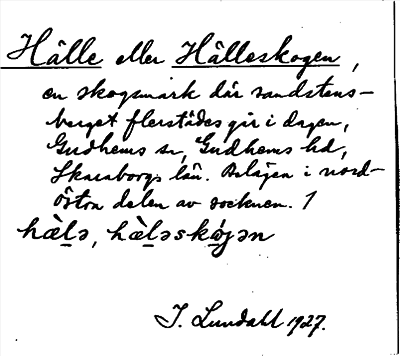 Hälle eller Hälleskogen,
en skogsmark där sandstens-
berget flerstädes går i dagen,
Gudhems sn, Gudhems hd,
Skaraborgs län. Belägen i nord-
östra delen av socknen. 1
hæ̀l̠ə, hæ̀l̠əskó̠gən
I. Lundahl 1927.